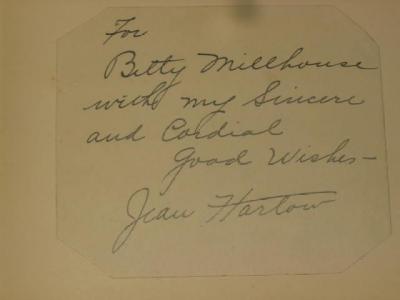 For
Betty Millhouse
with my Sincere
and Cordial
Good Wishes-
Jean Harlow